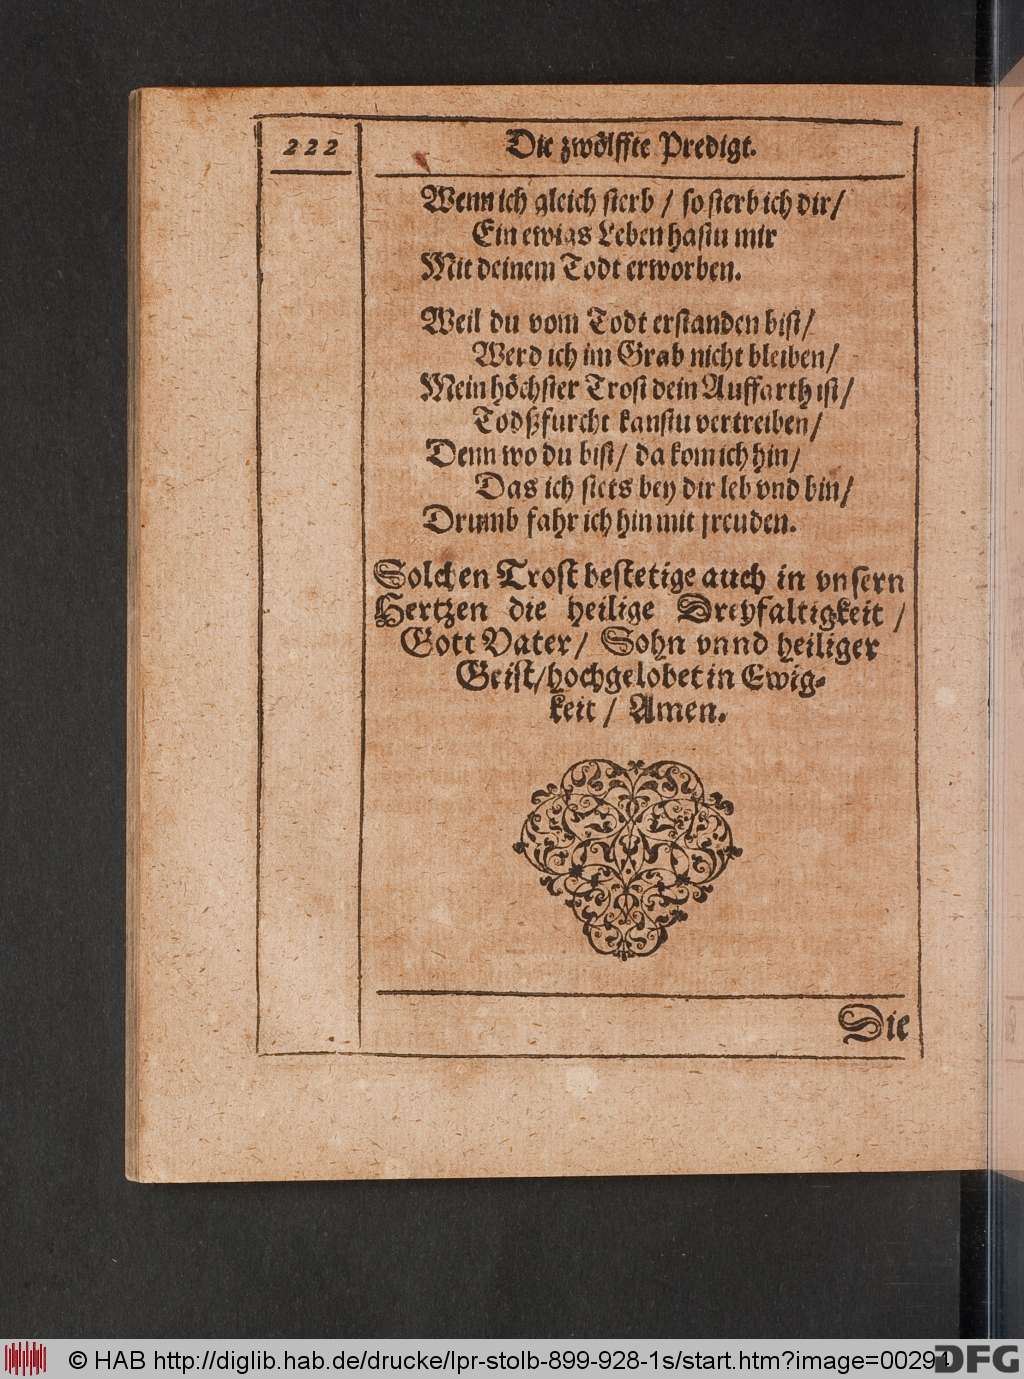 222
Die zwölffte Predigt.
Wenn ich gleich sterb / so sterb ich dir /
Ein ewigs Leben hastu mir
Mit deinem Todt erworben.
Weil du vom Todt erstanden bist /
Werd ich im Grab nicht bleiben /
Mein höchster Trost dein Auffarth ist /
Todßfurcht kanstu vertreiben /
Denn wo du bist / da kom ich hin /
Das ich stets bey dir leb vnd bin /
Drumb fahr ich hin mit freuden.
Solchen Trost bestetige auch in vnsern
Hertzen die heilige Dreyfaltigkeit /
Gott Vater / Sohn vnnd heiliger
Geist / hochgelobet in Ewig-
keit / Amen.
Die
© HAB http://diglib.hab.de/drucke/lpr-stolb-899-928-1s/start.htm?image=00294
DFG